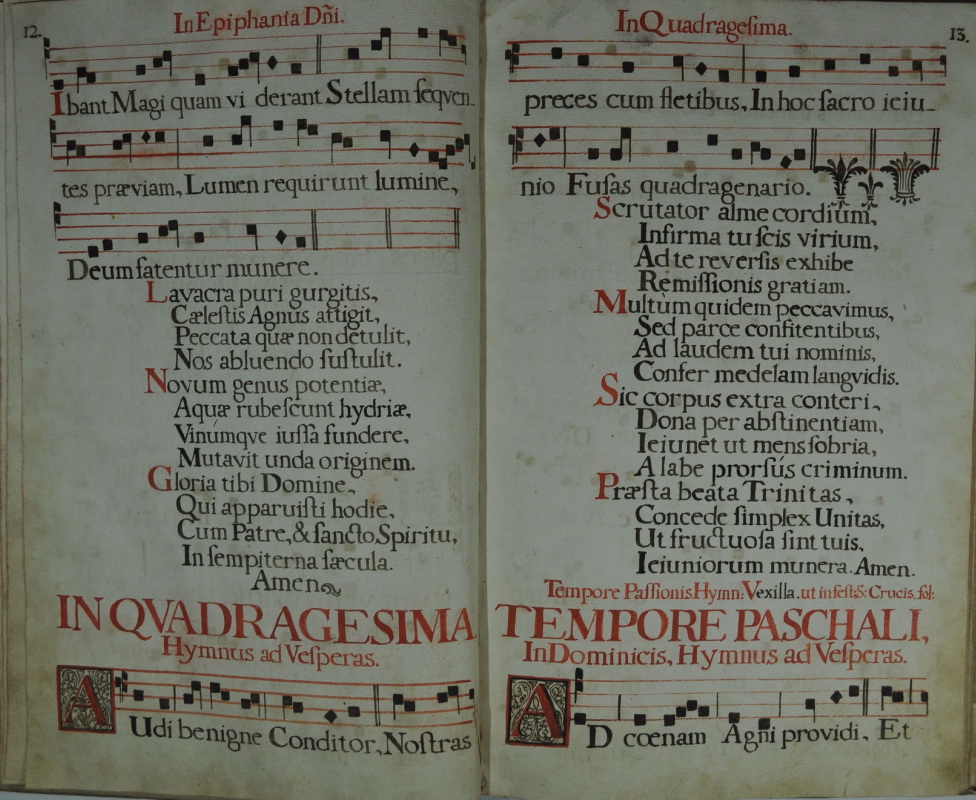 12.
In Epiphania Dñi.
Ibant Magi quam vi derant Stellam seqven-
tes præviam, Lumen requirunt lumine,
Deum fatentur munere.
Lavacra puri gurgitis,
Cælestis Agnus attigit,
Peccata quæ non detulit,
Nos abluendo sustulit.
Novum genus potentiæ,
Aquæ rubescunt hydriæ,
Vinúmqve iussa fundere,
Mutavit unda originem.
Gloria tibi Domine,
Qui apparuisti hodie,
Cum Patre, & sancto Spiritu,
In sempiterna sæcula.
Amen
IN QVADRAGESIMA
Hymnus ad Vesperas.
AUdi benigne Conditor, Nostras
In Quadragesima.
13.
preces cum fletibus, In hoc sacro ieiu-
nio Fusas quadragenario.
Scrutator alme cordium,
Infirma tu scis virium,
Ad te reversis exhibe
Remissionis gratiam.
Multùm quidem peccavimus,
Sed parce confitentibus,
Ad laudem tui nominis,
Confer medelam langvidis.
Sic corpus extra conteri,
Dona per abstinentiam,
Ieiunet ut mens sobria,
A labe prorsús criminum.
Præsta beata Trinitas,
Concede simplex Unitas,
Ut fructuosa sint tuis,
Ieiuniorum munera. Amen.
Tempore Passionis Hymn: Vexilla. ut in fest: S: Crucis. fol:
TEMPORE PASCHALI,
In Dominicis, Hymnus ad Vesperas.
AD coenam Agni providi, Et